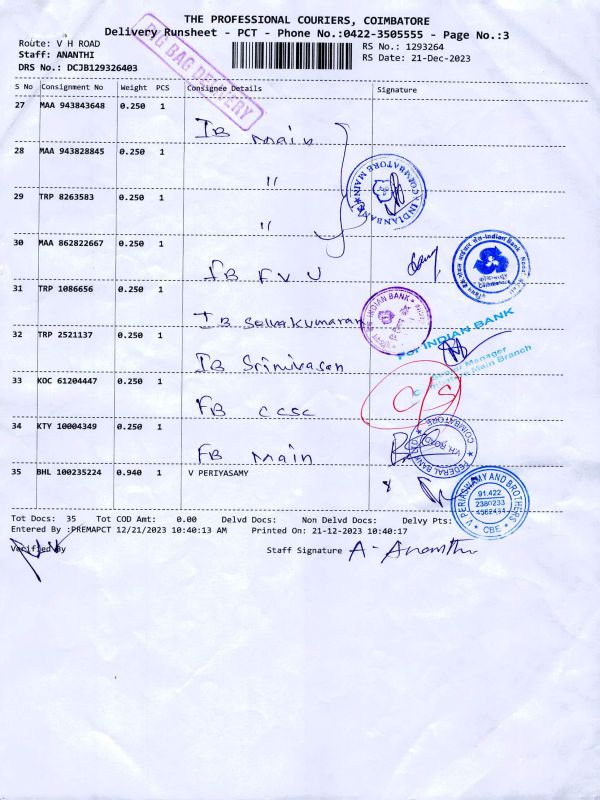 THE PROFESSIONAL COURIERS, COIMBATORE
Delivery Runsheet - PCT - Phone No.:0422-3505555 - Page No.:3
Route: V H ROAD
RS No.: 1293264
Staff: ANANTHI
RS Date: 21-Dec-2023
DRS No.: DCJB129326403
BIG BAG DELIVERY
S No Consignment No Weight PCS Consignee Details Signature
27 MAA 943843648 0.250 1 IB Main
28 MAA 943828845 0.250 1 "
INDIAN BANK COIMBATORE MAIN
29 TRP 8263583 0.250 1 "
30 MAA 862822667 0.250 1 IB F V U
31 TRP 1086656 0.250 1 IB Selvakumaran
INDIAN BANK
32 TRP 2521137 0.250 1 IB Srinivasan
For INDIAN BANK
Manager
Main Branch
33 KOC 61204447 0.250 1 FB CCSC
C/S
34 KTY 10004349 0.250 1 FB Main
FEDERAL BANK V.H. ROAD COIMBATORE
35 BHL 100235224 0.940 1 V PERIYASAMY
V.PERIYASWAMY AND BROTHERS
91.422
2380233
4562434
CBE
Tot Docs: 35 Tot COD Amt: 0.00 Delvd Docs: Non Delvd Docs: Delvy Pts:
Entered By :PREMAPCT 12/21/2023 10:40:13 AM Printed On: 21-12-2023 10:40:17
Verified By
Staff Signature A. Ananthi